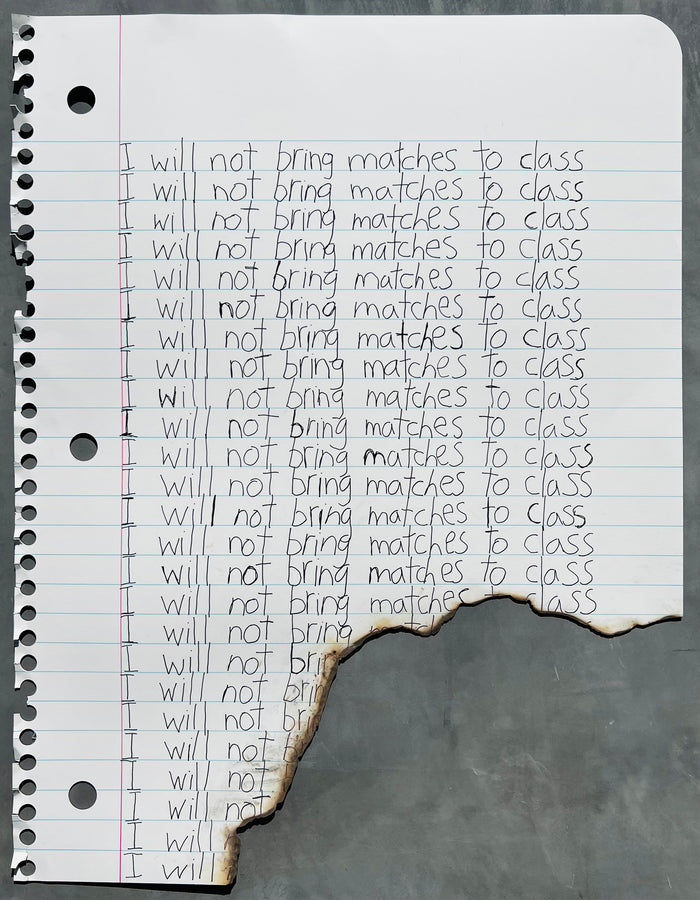 I will not bring matches to class
I will not bring matches to class
I will not bring matches to class
I will not bring matches to class
I will not bring matches to class
I will not bring matches to class
I will not bring matches to class
I will not bring matches to class
I will not bring matches to class
I will not bring matches to class
I will not bring matches to class
I will not bring matches to class
I will not bring matches to class
I will not bring matches to class
I will not bring matches to class
I will not bring matches class
I will not bring
I will not bri
I will not bri
I will not br
I will not b
I will not
I will not
I will
I will